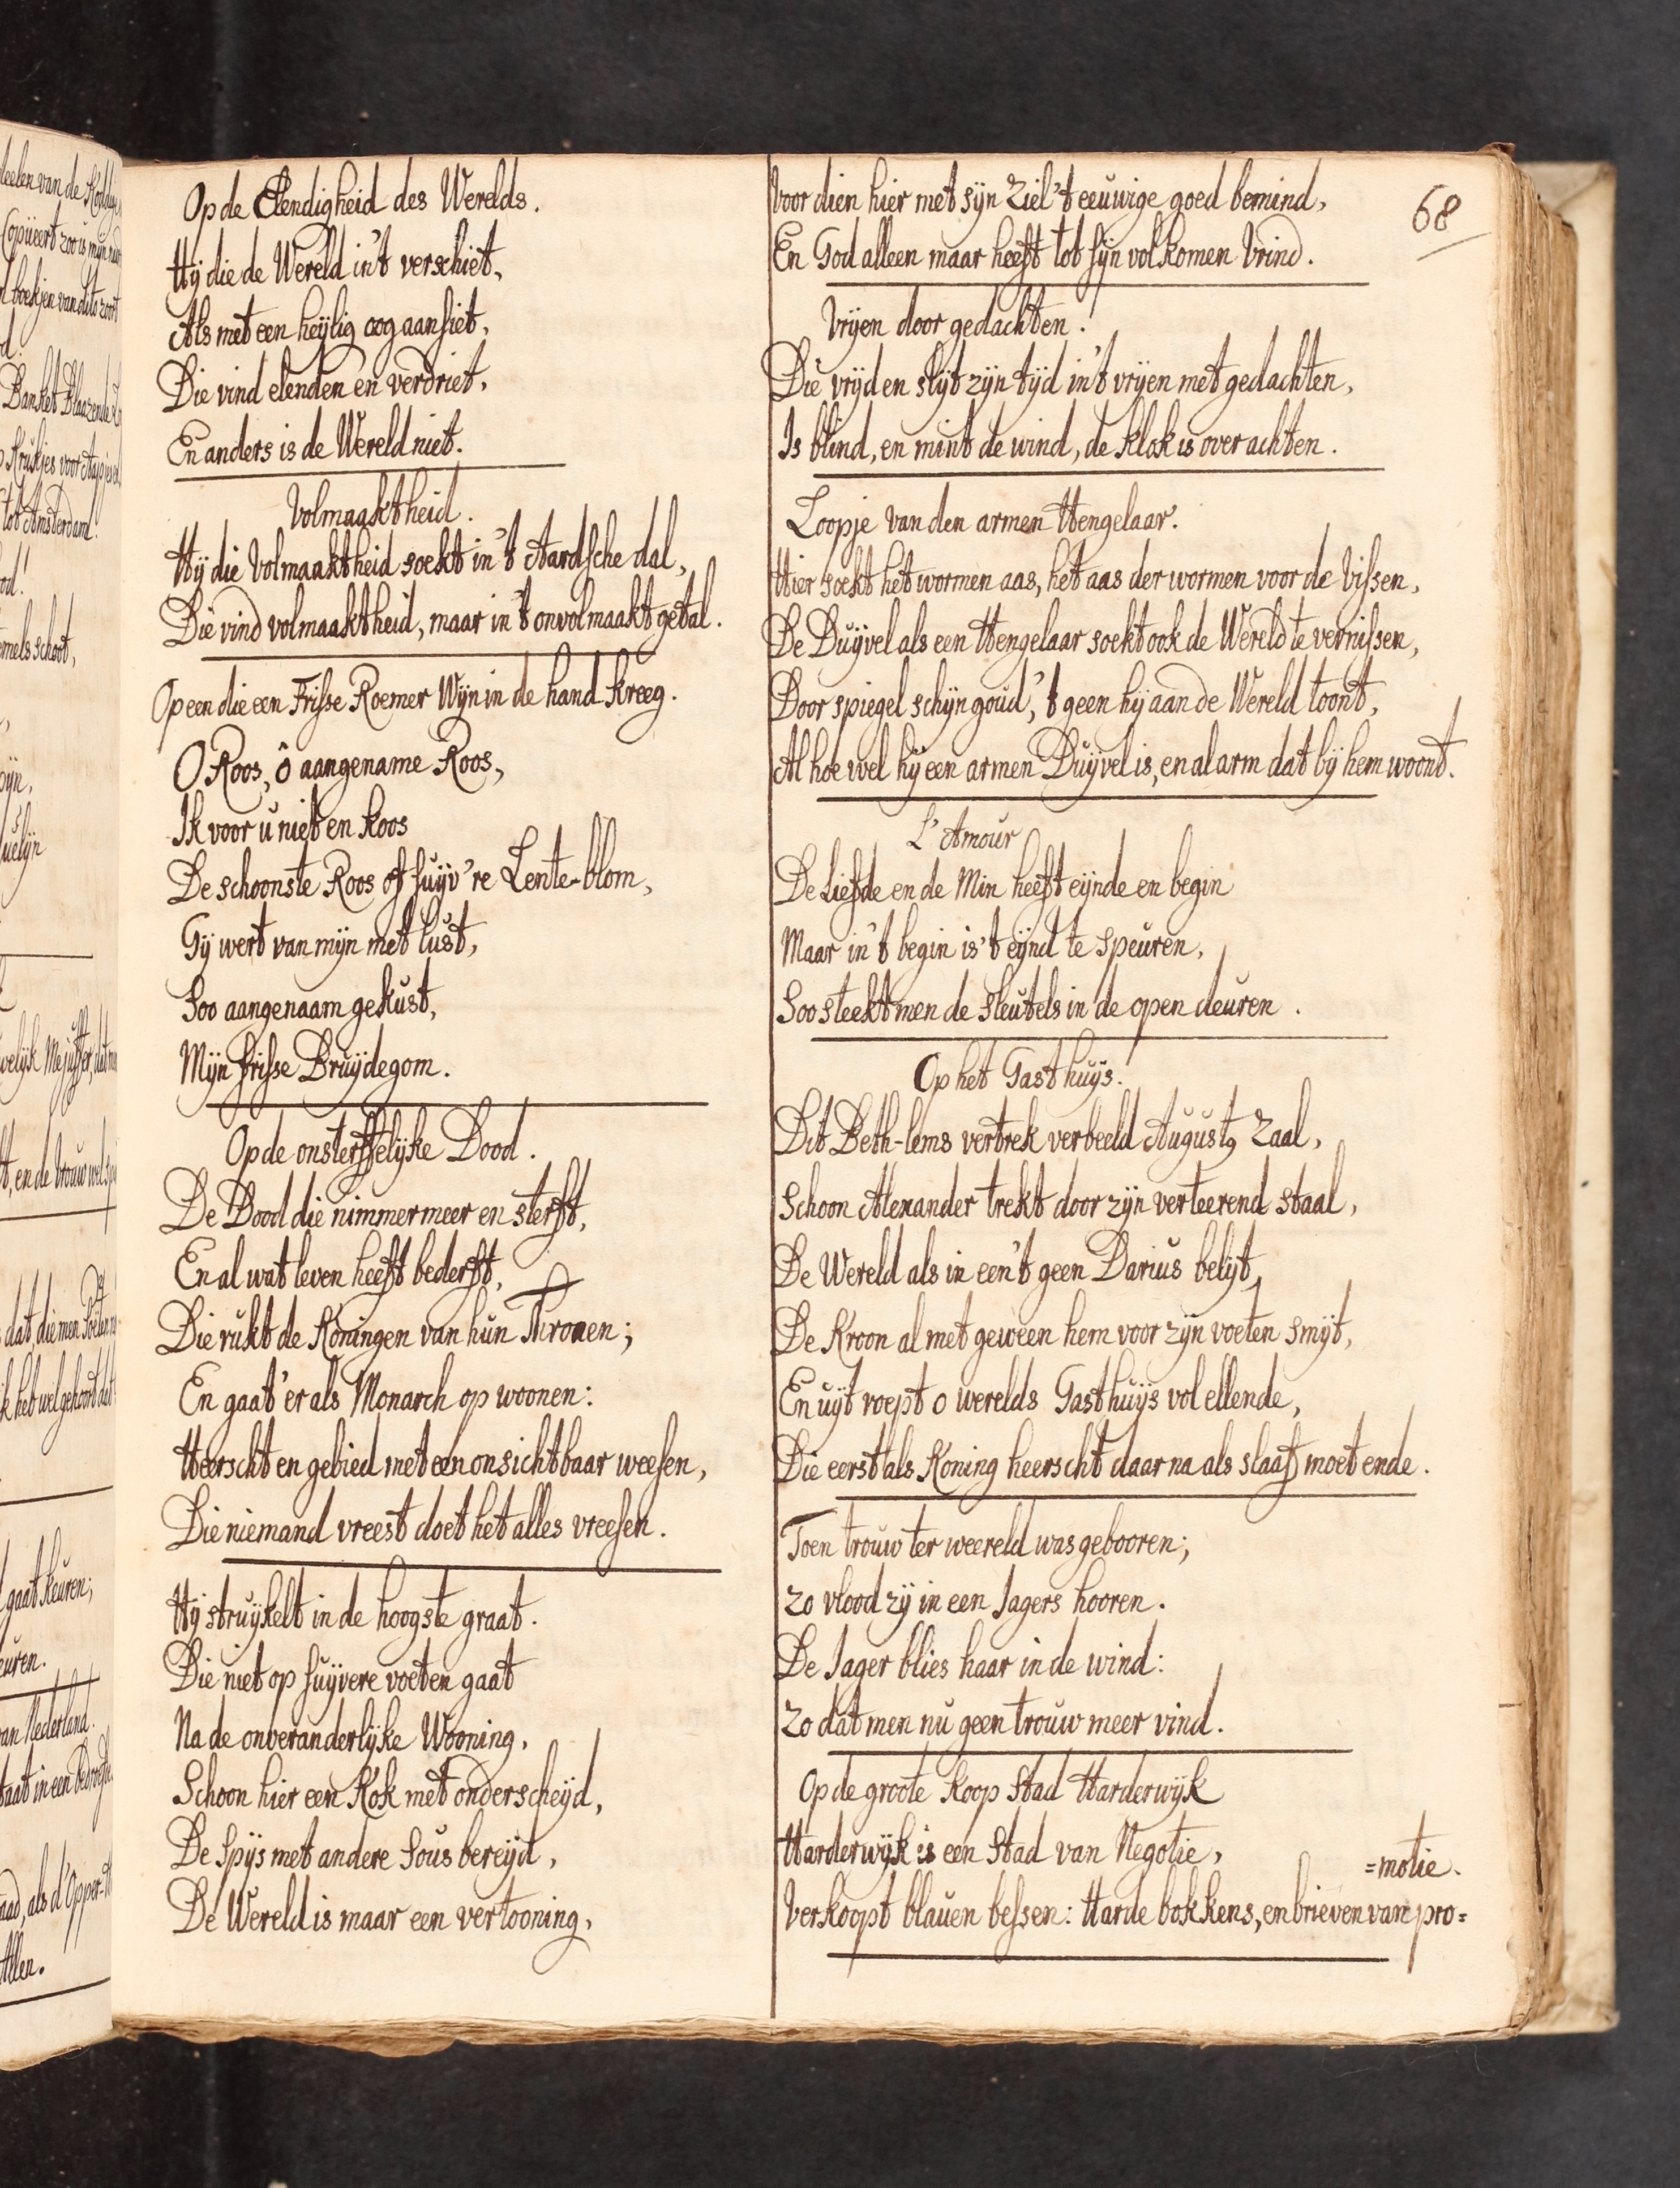 Op de Elendigheid des Werelds.
Hÿ die de Wereld in't verschiet,
Als met een heÿlig oog aansiet,
Die vind elenden en verdriet,
En anders is de Wereld niet.
Volmaaktheid.
Hÿ die Volmaaktheid soekt in 't Aardsche dal,
Die vind volmaaktheid, maar in 't onvolmaakt getal.
Op een die een Frisse Roemer Wÿn in de hand kreeg.
O Roos, ô aangename Roos,
Ik voor u niet en koos
De schoonste Roos of suÿv're Lente-blom,
Gÿ wert van mÿn met lust,
Soo aangenaam gekust,
Mÿn frisse Bruÿdegom.
Op de onsterffelÿke Dood.
De Dood die nimmermeer en sterft,
En al wat leven heeft bederft,
Die rukt de Koningen van hun Thronen;
En gaat'er als Monarch op woonen:
Heerscht en gebied met een onsichtbaar weesen,
Die niemand vreest doet het alles vreesen.
Hÿ struÿkelt in de hoogste graat.
Die niet op suÿvere voeten gaat
Na de onveranderlÿke Wooning,
Schoon hier een Kok met onderscheÿd,
De Spÿs met andere Sous bereÿd,
De Wereld is maar een vertooning,
Voor dien hier met sÿn Ziel 't eeuwige goed bemind,
En God alleen maar heeft tot sÿn volkomen Vrind.
68
Vrÿen door gedachten.
Die vrÿd en slÿt zÿn tÿd in't vrÿen met gedachten,
Is blind, en mint de wind, de klok is over achten.
Loopje van den armen Hengelaar.
Hier soekt het wormen aas, het aas der wormen voor de Vissen,
De Duÿvel als een Hengelaar soekt ook de Wereld te vernissen,
Door spiegel schÿn goud, 't geen hÿ aan de Wereld toont,
Al hoe wel hÿ een armen Duÿvel is, en al arm dat bÿ hem woont.
L'Amour
De Liefde en de Min heeft eÿnde en begin
Maar in't begin is't eÿnd te speuren,
Soo steekt men de sleutels in de open deuren.
Op het Gasthuÿs.
Dit Beth-lems vertrek verbeeld August9 Zaal,
Schoon Alexander trekt door zÿn verteerend staal,
De Wereld als in een 't geen Darius belÿt,
De Kroon al met geween hem voor zÿn voeten smÿt,
En uÿt roept o werelds Gasthuÿs vol ellende,
Die eerst als Koning heerscht daar na als slaaf moet ende.
Toen trouw ter weereld was gebooren;
Zo vlood zÿ in een Jagers hooren.
De Jager blies haar in de wind:
Zo dat men nu geen trouw meer vind.
Op de groote Koop Stad Harderwÿk
Harderwÿk is een Stad van Negotie,
=motie.
Verkoopt blauen bessen: Harde bokkens, en brieven van pro=